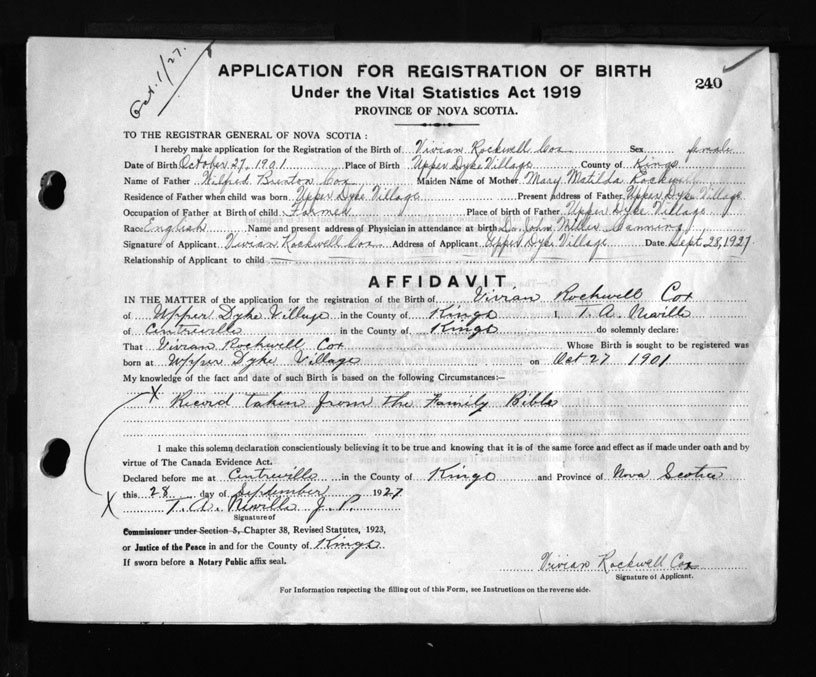 Oct. 1/27.
APPLICATION FOR REGISTRATION OF BIRTH
240
Under the Vital Statistics Act 1919
PROVINCE OF NOVA SCOTIA.
TO THE REGISTRAR GENERAL OF NOVA SCOTIA :
I hereby make application for the Registration of the Birth of Vivian Rockwell Cox Sex female
Date of Birth October 27, 1901 Place of Birth Upper Dyke Village County of Kings
Name of Father Wilfred Brenton Cox Maiden Name of Mother Mary Matilda Rockwell
Residence of Father when child was born Upper Dyke Village Present address of Father Upper Dyke Village
Occupation of Father at Birth of child Farmer Place of birth of Father Upper Dyke Village
Race English Name and present address of Physician in attendance at birth Dr. John Miller Canning
Signature of Applicant Vivian Rockwell Cox Address of Applicant Upper Dyke Village Date Sept 28, 1927
Relationship of Applicant to child
AFFIDAVIT
IN THE MATTER of the application for the registration of the Birth of Vivian Rockwell Cox
of Upper Dyke Village in the County of Kings I, T. A. Neville
of Centreville in the County of Kings do solemnly declare:
That Vivian Rockwell Cox Whose Birth is sought to be registered was
born at Upper Dyke Village on Oct 27 1901
My knowledge of the fact and date of such Birth is based on the following Circumstances:—
X Record taken from the Family Bible
I make this solemn declaration conscientiously believing it to be true and knowing that it is of the same force and effect as if made under oath and by
virtue of The Canada Evidence Act.
Declared before me at Centreville in the County of Kings and Province of Nova Scotia
this 28 day of September 1927
X T. A. Neville J. P.
Signature of
Commissioner under Section 5, Chapter 38, Revised Statutes, 1923,
or Justice of the Peace in and for the County of Kings
If sworn before a Notary Public affix seal.
Vivian Rockwell Cox
Signature of Applicant.
For Information respecting the filling out of this Form, see Instructions on the reverse side.